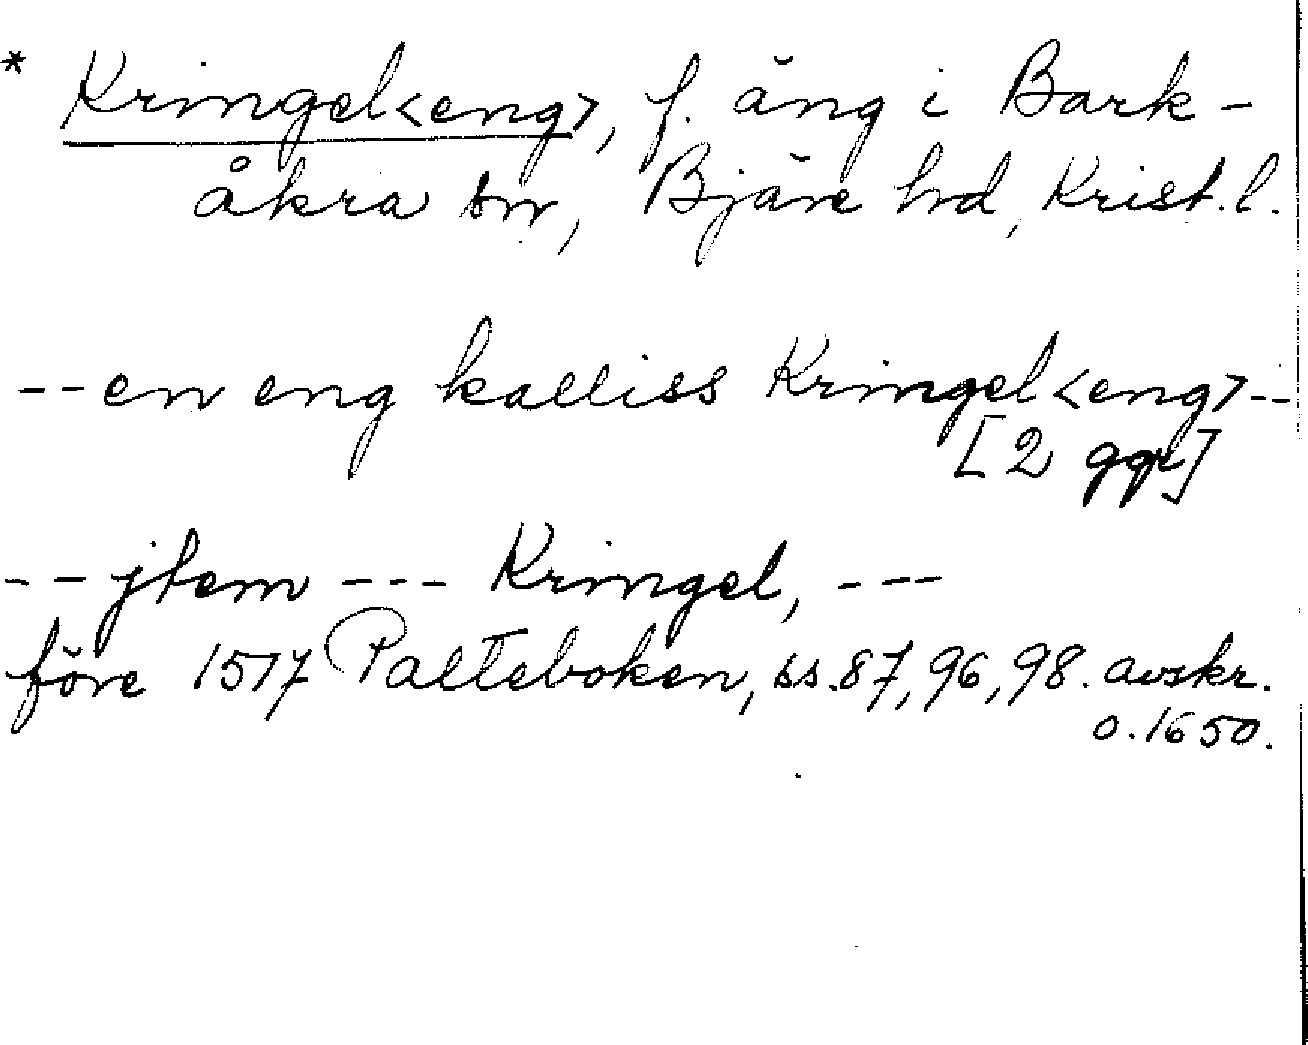 * Kringel<eng>, f. äng i Bark-
åkra sn, Bjäre hd, Krist. l.
--en eng kalliss Kringel<eng>--
[2 ggr]
--jtem --- Kringel, ---
före 1517 Palteboken, ss. 87, 96, 98. avskr.
o. 1650.